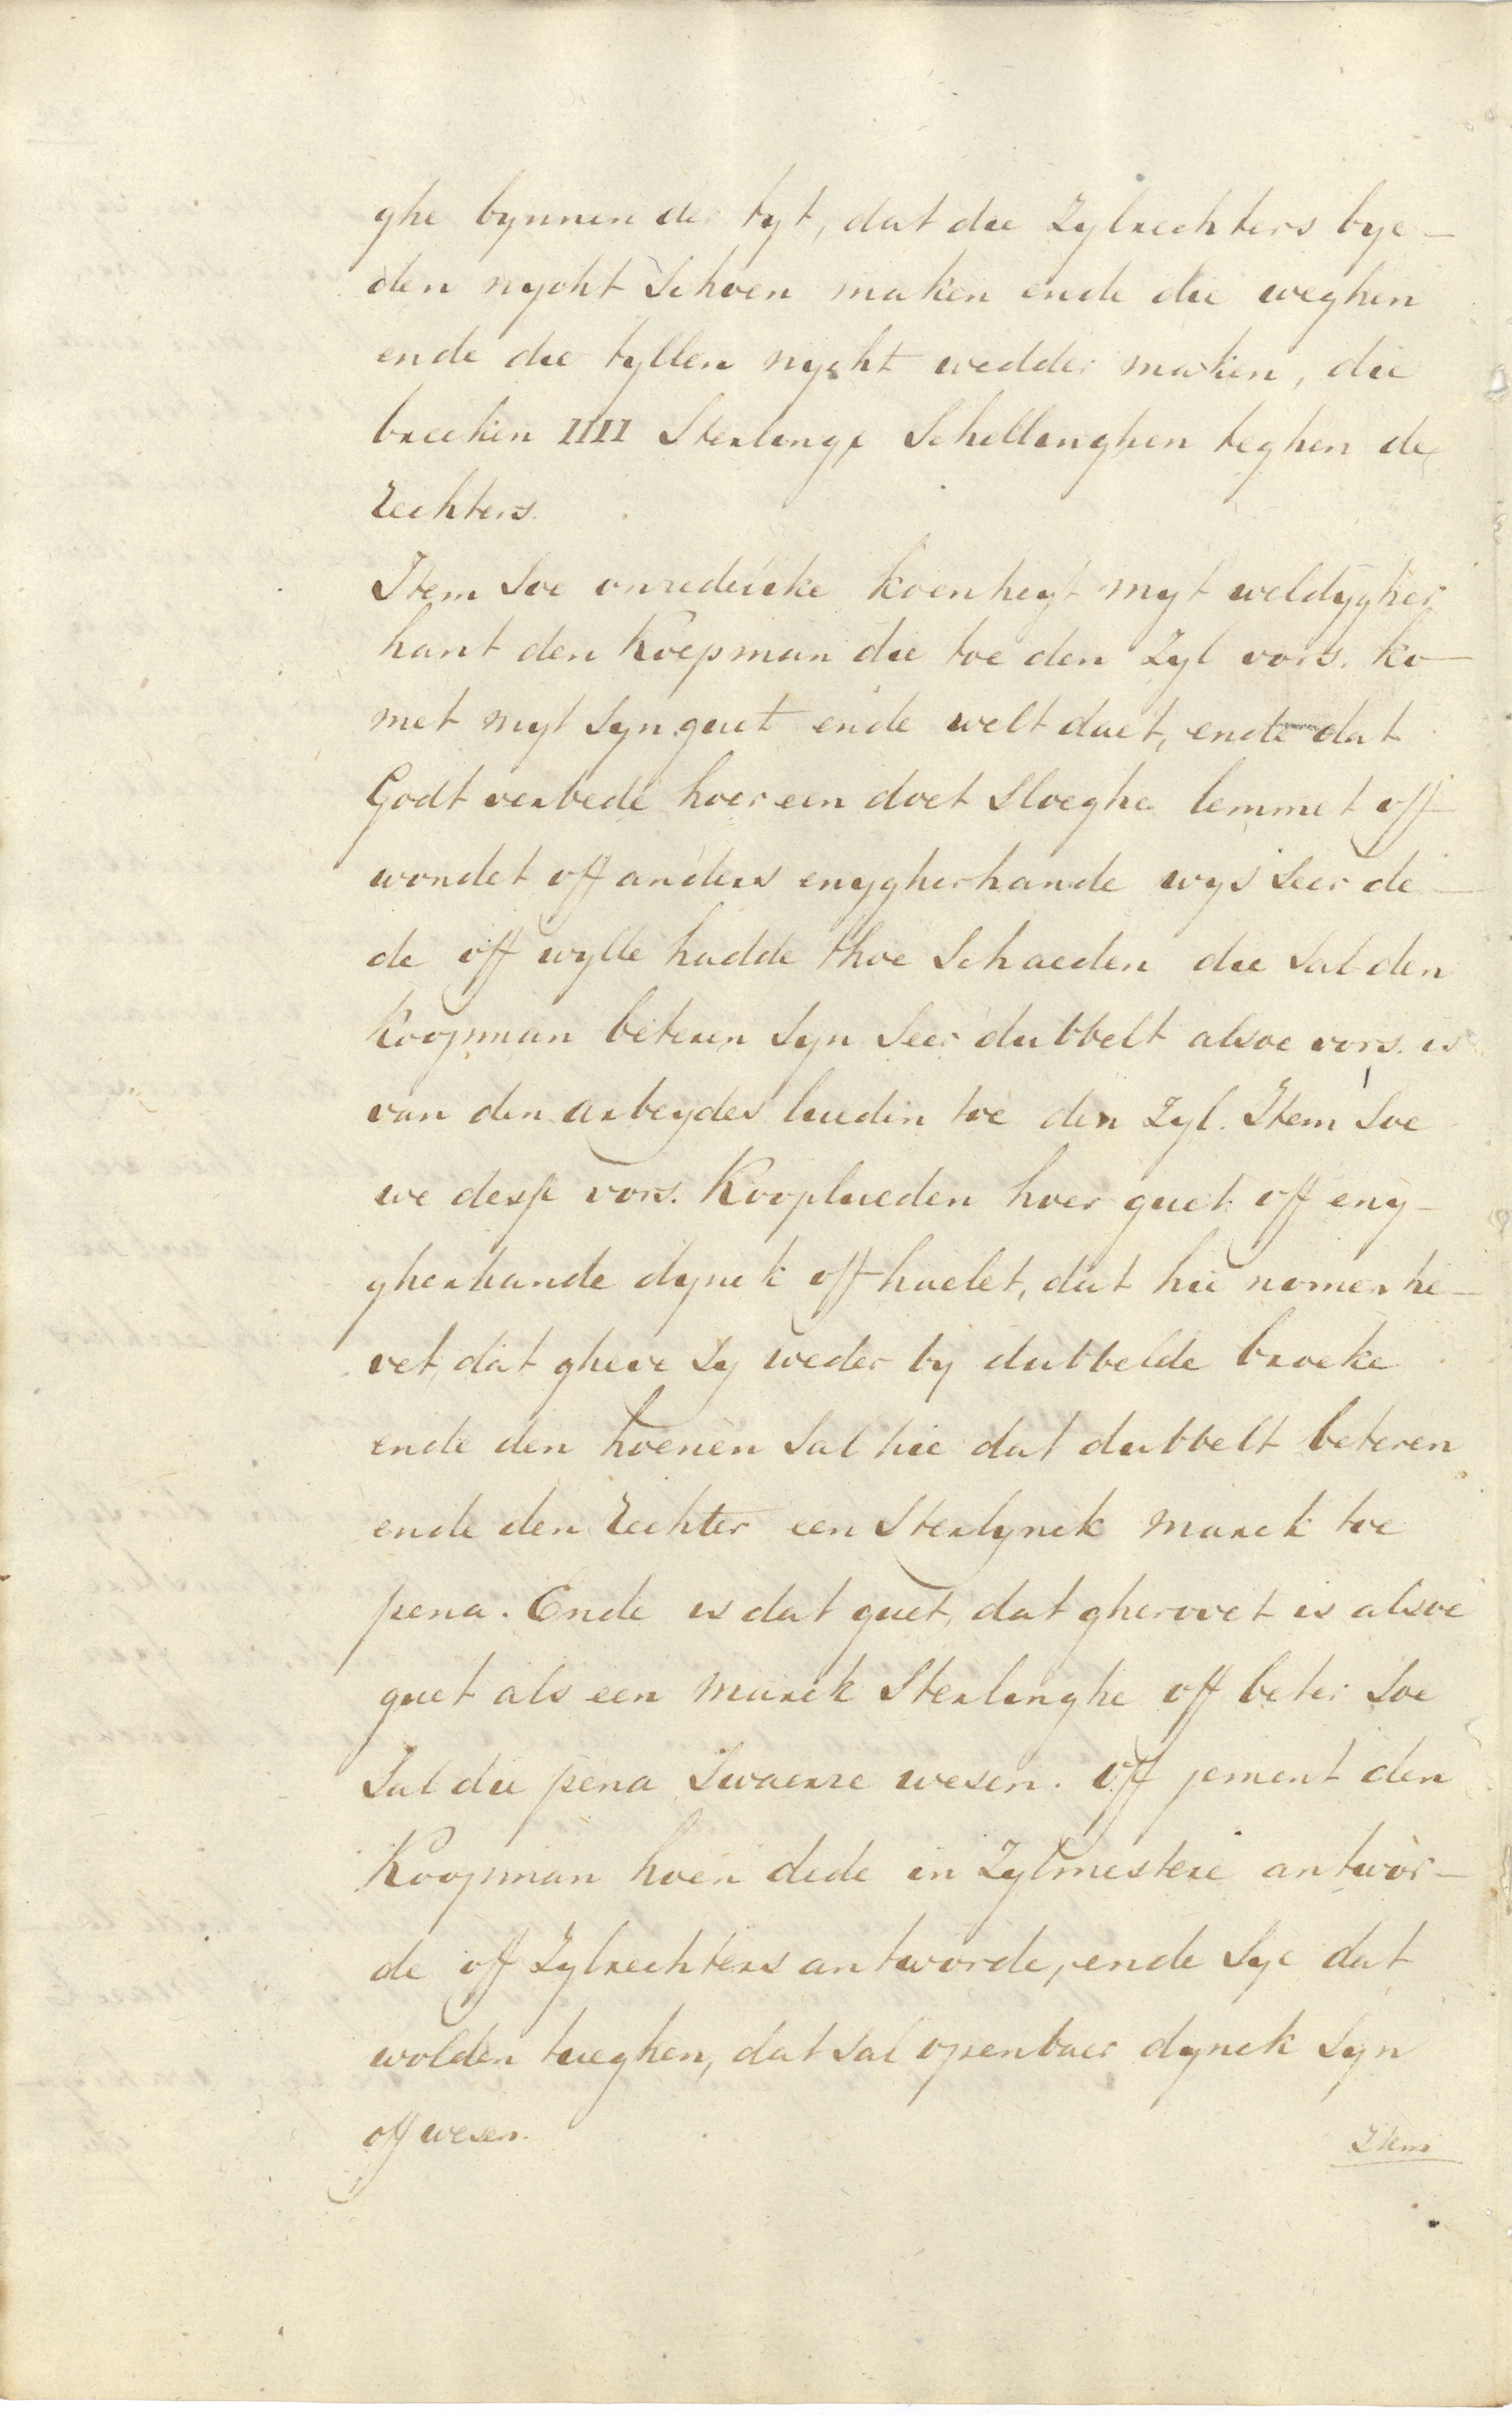 ghe bynnen der tyt, dat die Zylrechters bye-
den nycht Schoen maken ende die weghen
ende die tyllen nycht wedder maken, die
breeken IIII Sterlingx Schellinghen teghen de
Rechters.
Item Soe onredeleke koenheyt myt weldygher
hant den Koepman die toe den Zyl vors. ko-
met myt Syn guet ende welt duet, ende dat
Godt verbede hoer een doet Sloeghe lemmet off
wondet off anders enygherhande wys Seer de-
de off wylle hadde thoe Schaeden die Sal den
Koopman beteren Syn Seer dubbelt alsoe vors. is
van den arbeydes lueden toe den Zyl. Item Soe
we desse vors. Kooplueden hoer guet off eny-
gherhande dynck off haelet, dat hie nomen he-
vet, dat gheve Sy weder by dubbelde broeke
ende den hoenen Sal hie dat dubbelt beteren
ende den Rechter een Sterlynck marck toe
pena. Ende is dat guet, dat gherovet is alsoe
guet als een marck Sterlinghe off beter Soe
Sal die pena Swaerre wesen. Off jement den
Koopman hoen dede in Zylmestere antwor-
de off Zylrechters antworde, ende Sye dat
wolden tueghen, dat Sal openbaer dynck Syn
off wesen.
Item